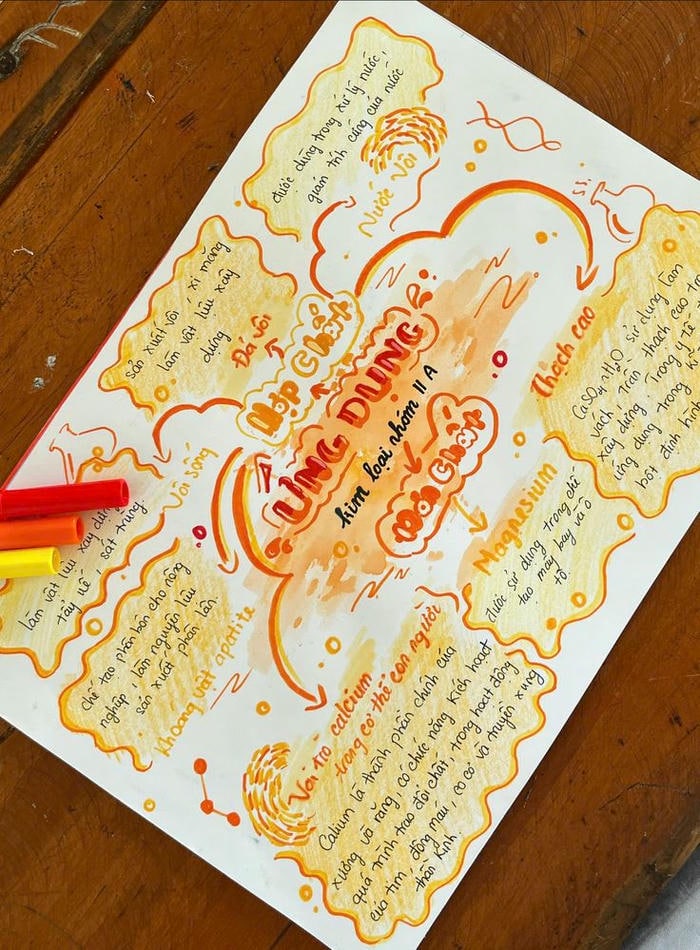 ỨNG DỤNG
kim loại nhóm II A
Hợp Chất
Đơn Chất
Nước Vôi
được dùng trong xử lý nước,
giảm tính cứng của nước
Đá vôi
sản xuất vôi, xi măng
làm vật liệu xây
dựng
Vôi sống
làm vật liệu xây dựng
tẩy uế, sát trùng.
Khoáng vật apatite
Chế tạo phân bón cho nông
nghiệp, làm nguyên liệu
sản xuất phân lân.
Thạch cao
CaSO4.nH2O sử dụng làm
vách trần thạch cao
xây dựng. Trong y tế
ứng dụng trong
bột định
Magnesium
được sử dụng trong chế
tạo máy bay và ô
tô.
Vai trò calcium
trong cơ thể con người
Calium là thành phần chính của
xương và răng, có chức năng kích hoạt
quá trình trao đổi chất, trong hoạt động
của tim, đông máu, co cơ và truyền xung
thần kinh.